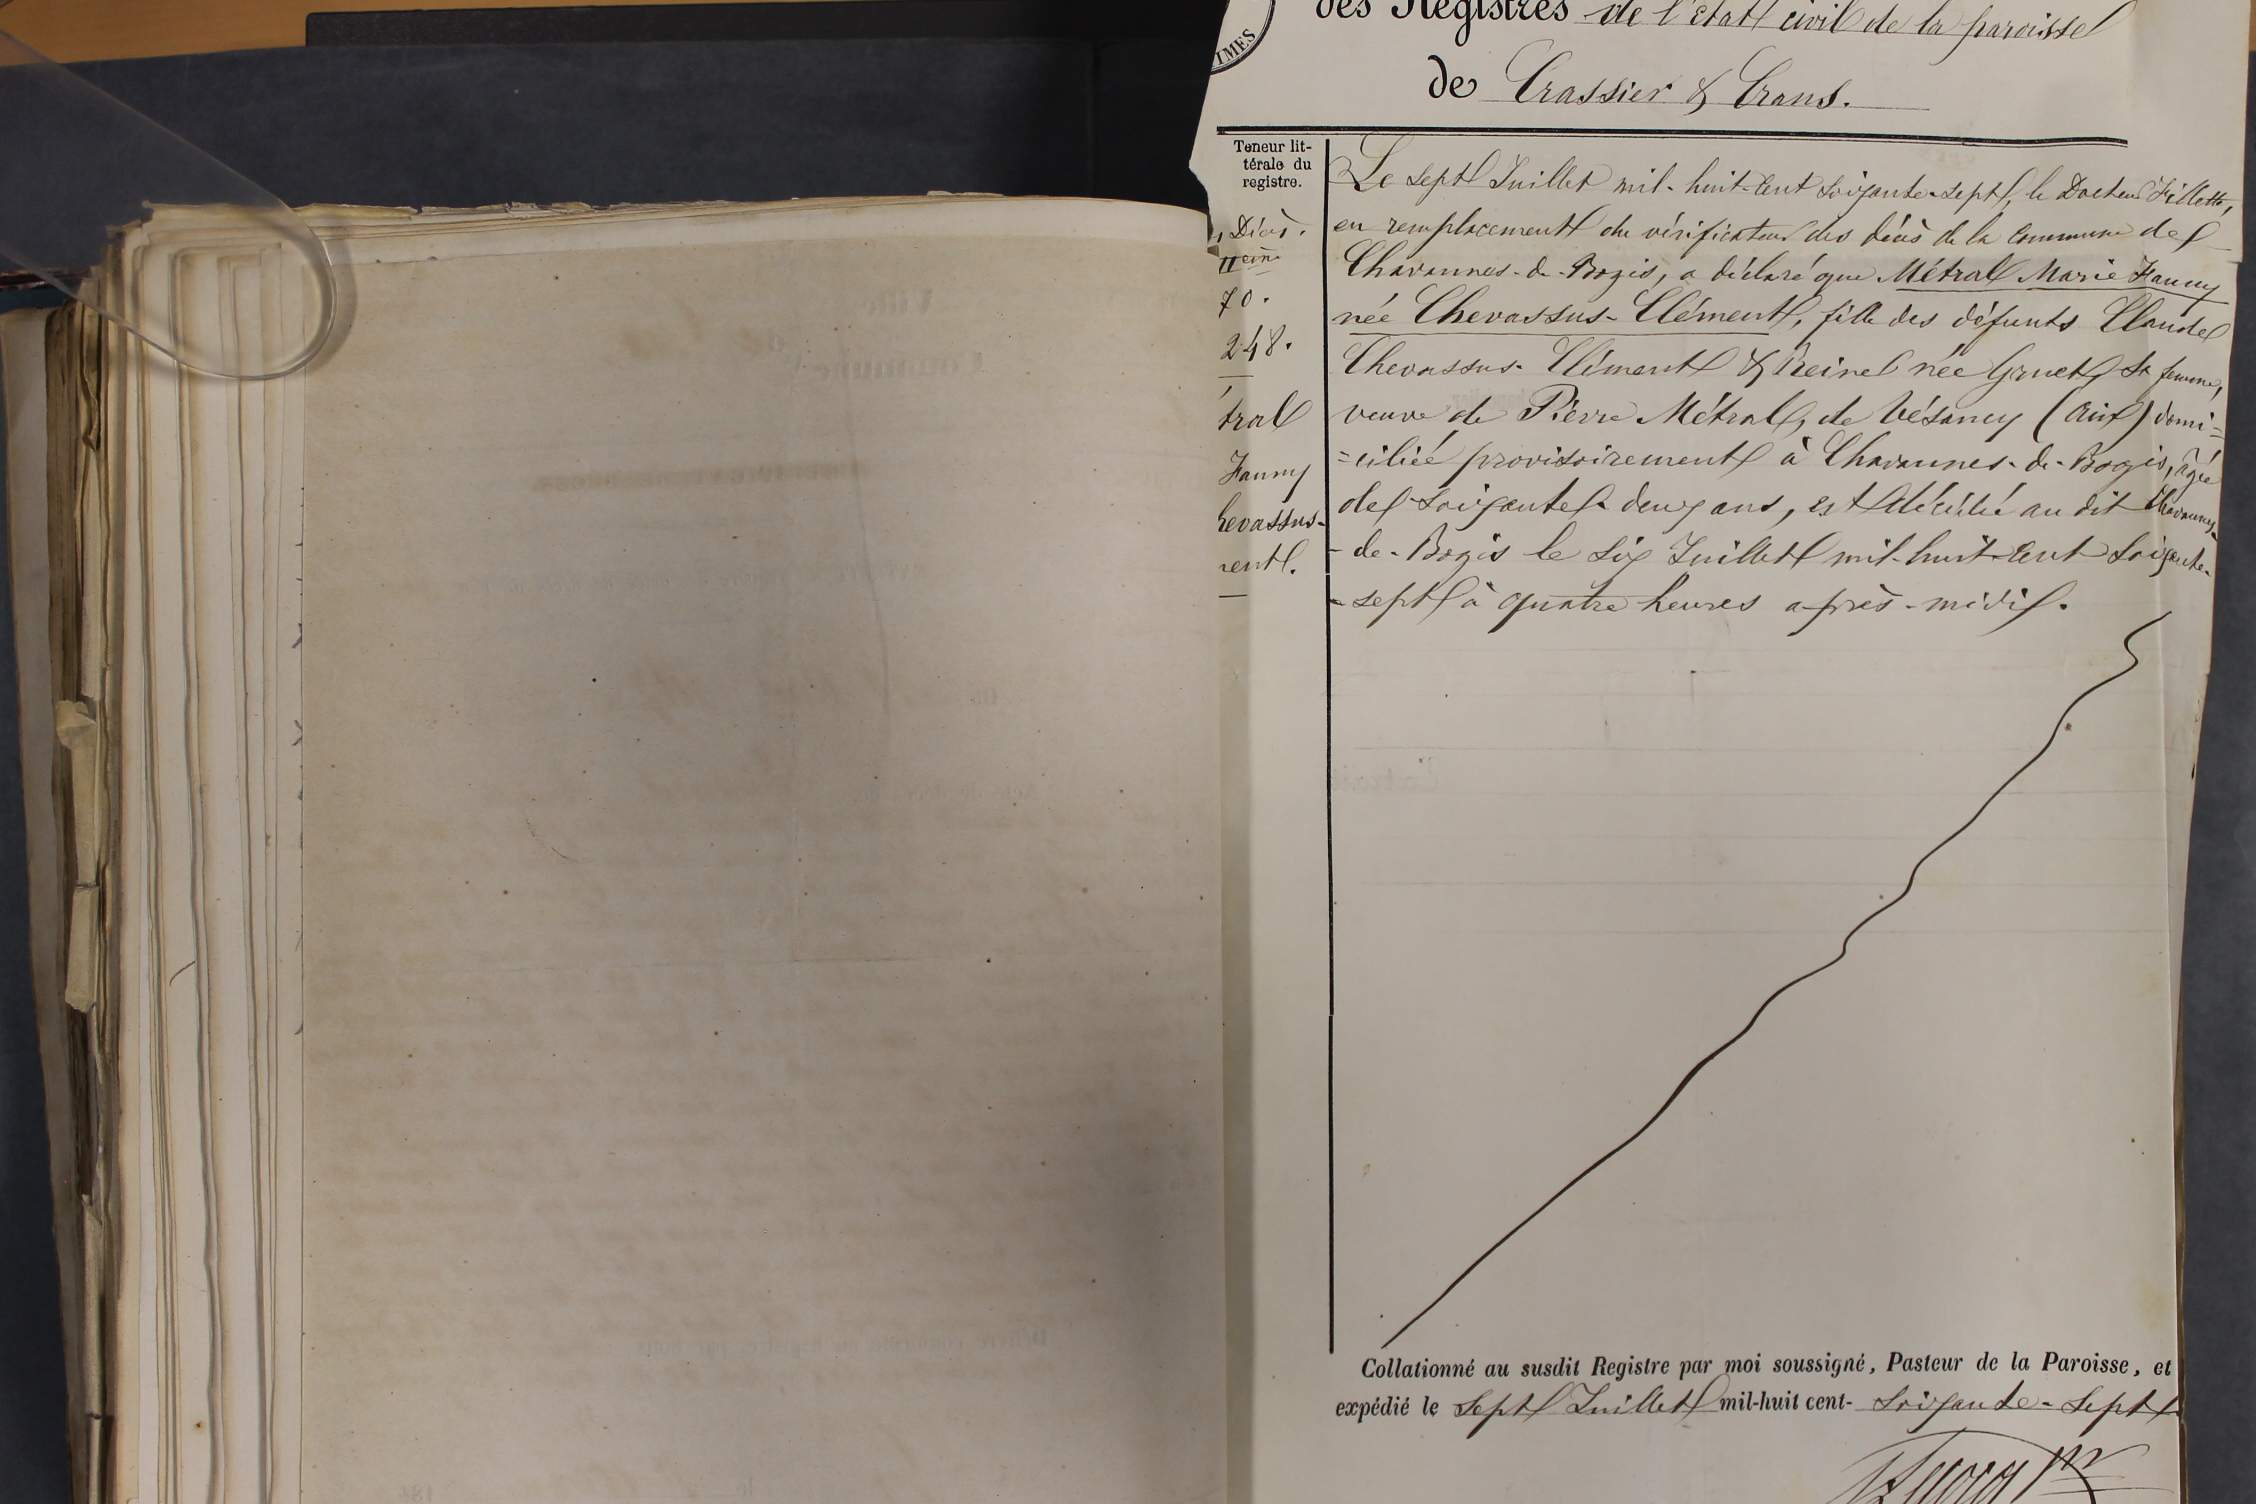 IMES
des Registres de l'état civil de la paroisse
de Crassier & Crans.
Teneur lit-
térale du
registre.
Décès.
70.
248.
tral
Fanny
hevassus-
ment.
Le sept Juillet mil-huit-cent soixante-sept, le Docteur
en remplacement du vérificateur des décès de la commune de
Chavannes-de-Bogis, a déclaré que Métral Marie Fanny
née Chevassus-Clément, fille des défunts Claude
Chevassus-Clément & Reine née Gruet, sa femme,
veuve de Pierre Métral, de Vésancy (Ain) domi-
=ciliée provisoirement à Chavannes-de-Bogis, âgée
de soixante-deux ans, est décédée au dit Chavannes-
-de-Bogis le six Juillet mil-huit-cent soixante-
-sept à quatre heures après-midi.
Collationné au susdit Registre par moi soussigné, Pasteur de la Paroisse, et
expédié le sept Juillet mil-huit cent- soixante-sept